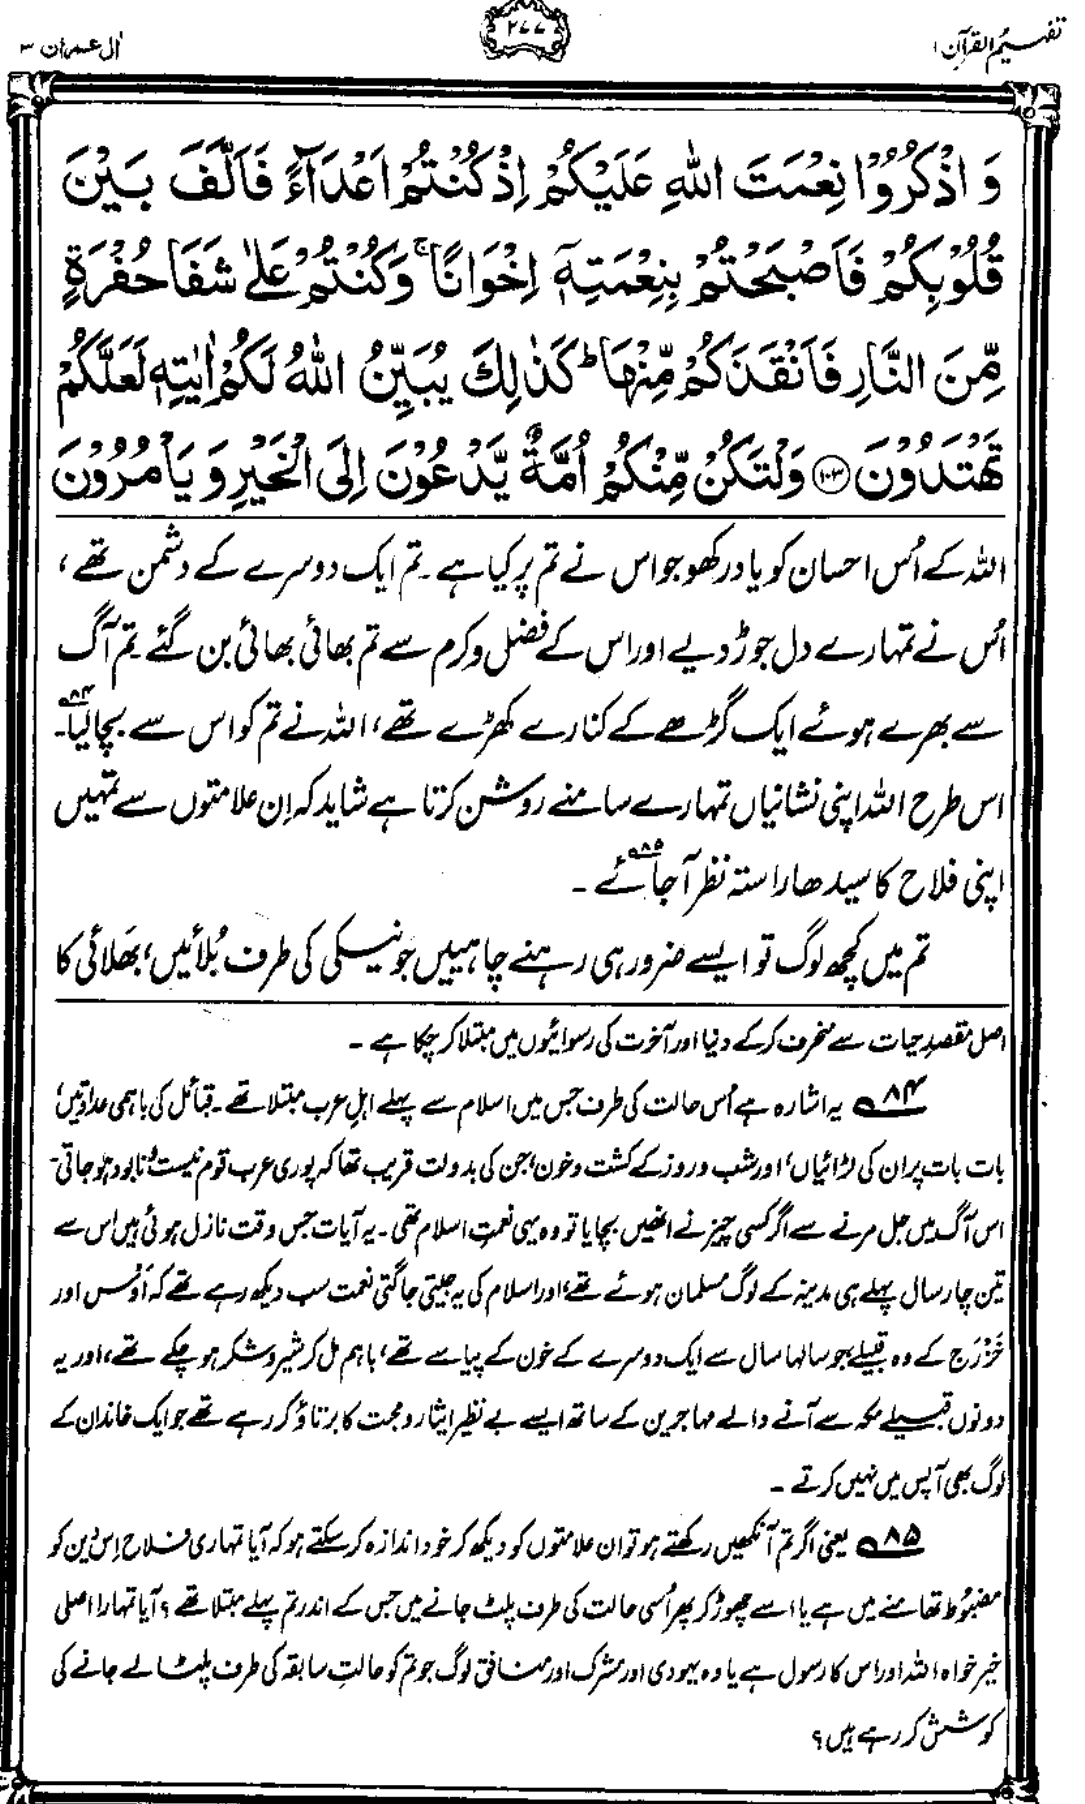 تفہیم القرآن ۱
۲۷۷
اٰل عمران ۳
وَ اذْكُرُوْا نِعْمَتَ اللّٰهِ عَلَيْكُمْ اِذْ كُنْتُمْ اَعْدَآءً فَاَلَّفَ بَيْنَ
قُلُوْبِكُمْ فَاَصْبَحْتُمْ بِنِعْمَتِهٖۤ اِخْوَانًا ۚ وَكُنْتُمْ عَلٰى شَفَا حُفْرَةٍ
مِّنَ النَّارِ فَاَنْقَذَكُمْ مِّنْهَا ؕ كَذٰلِكَ يُبَيِّنُ اللّٰهُ لَكُمْ اٰيٰتِهٖ لَعَلَّكُمْ
تَهْتَدُوْنَ ﴿۱۰۳﴾ وَلْتَكُنْ مِّنْكُمْ اُمَّةٌ يَّدْعُوْنَ اِلَى الْخَيْرِ وَ يَاْمُرُوْنَ
اللہ کے اُس احسان کو یاد رکھو جو اس نے تم پر کیا ہے۔ تم ایک دوسرے کے دشمن تھے،
اُس نے تمہارے دل جوڑ دیے اور اس کے فضل و کرم سے تم بھائی بھائی بن گئے۔ تم آگ
سے بھرے ہوئے ایک گڑھے کے کنارے کھڑے تھے، اللہ نے تم کو اس سے بچا لیا۸۴۔
اس طرح اللہ اپنی نشانیاں تمہارے سامنے روشن کرتا ہے شاید کہ اِن علامتوں سے تمہیں
اپنی فلاح کا سیدھا راستہ نظر آجائے۸۵۔
تم میں کچھ لوگ تو ایسے ضرور ہی رہنے چاہییں جو نیکی کی طرف بُلائیں، بھَلائی کا
اصل مقصدِ حیات سے منحرف کرکے دنیا اور آخرت کی رسوائیوں میں مبتلا کر چکا ہے۔
۸۴ یہ اشارہ ہے اُس حالت کی طرف جس میں اسلام سے پہلے اہلِ عرب مبتلا تھے۔ قبائل کی باہمی عداوتیں،
بات بات پر ان کی لڑائیاں، اور شب و روز کے کشت و خون، جن کی بدولت قریب تھا کہ پوری عرب قوم نیست و نابود ہو جاتی۔
اس آگ میں جل مرنے سے اگر کسی چیز نے انھیں بچایا تو وہ یہی نعمتِ اسلام تھی۔ یہ آیات جس وقت نازل ہوئی ہیں اس سے
تین چار سال پہلے ہی مدینہ کے لوگ مسلمان ہوئے تھے، اور اسلام کی یہ جیتی جاگتی نعمت سب دیکھ رہے تھے کہ اَوْس اور
خَزْرَج کے وہ قبیلے، جو سالہا سال سے ایک دوسرے کے خون کے پیاسے تھے، باہم مل کر شیر و شکر ہو چکے تھے، اور یہ
دونوں قبیلے مکہ سے آنے والے مہاجرین کے ساتھ ایسے بے نظیر ایثار و محبت کا برتاؤ کر رہے تھے جو ایک خاندان کے
لوگ بھی آپس میں نہیں کرتے۔
۸۵ یعنی اگر تم آنکھیں رکھتے ہو تو ان علامتوں کو دیکھ کر خود اندازہ کر سکتے ہو کہ آیا تمہاری فلاح اِس دین کو
مضبُوط تھامنے میں ہے یا اسے چھوڑ کر پھر اُسی حالت کی طرف پلٹ جانے میں جس کے اندر تم پہلے مبتلا تھے؟ آیا تمہارا اصلی
خیر خواہ اللہ اور اس کا رسول ہے یا وہ یہودی اور مشرک اور منافق لوگ جو تم کو حالتِ سابقہ کی طرف پلٹا لے جانے کی
کوشش کر رہے ہیں؟